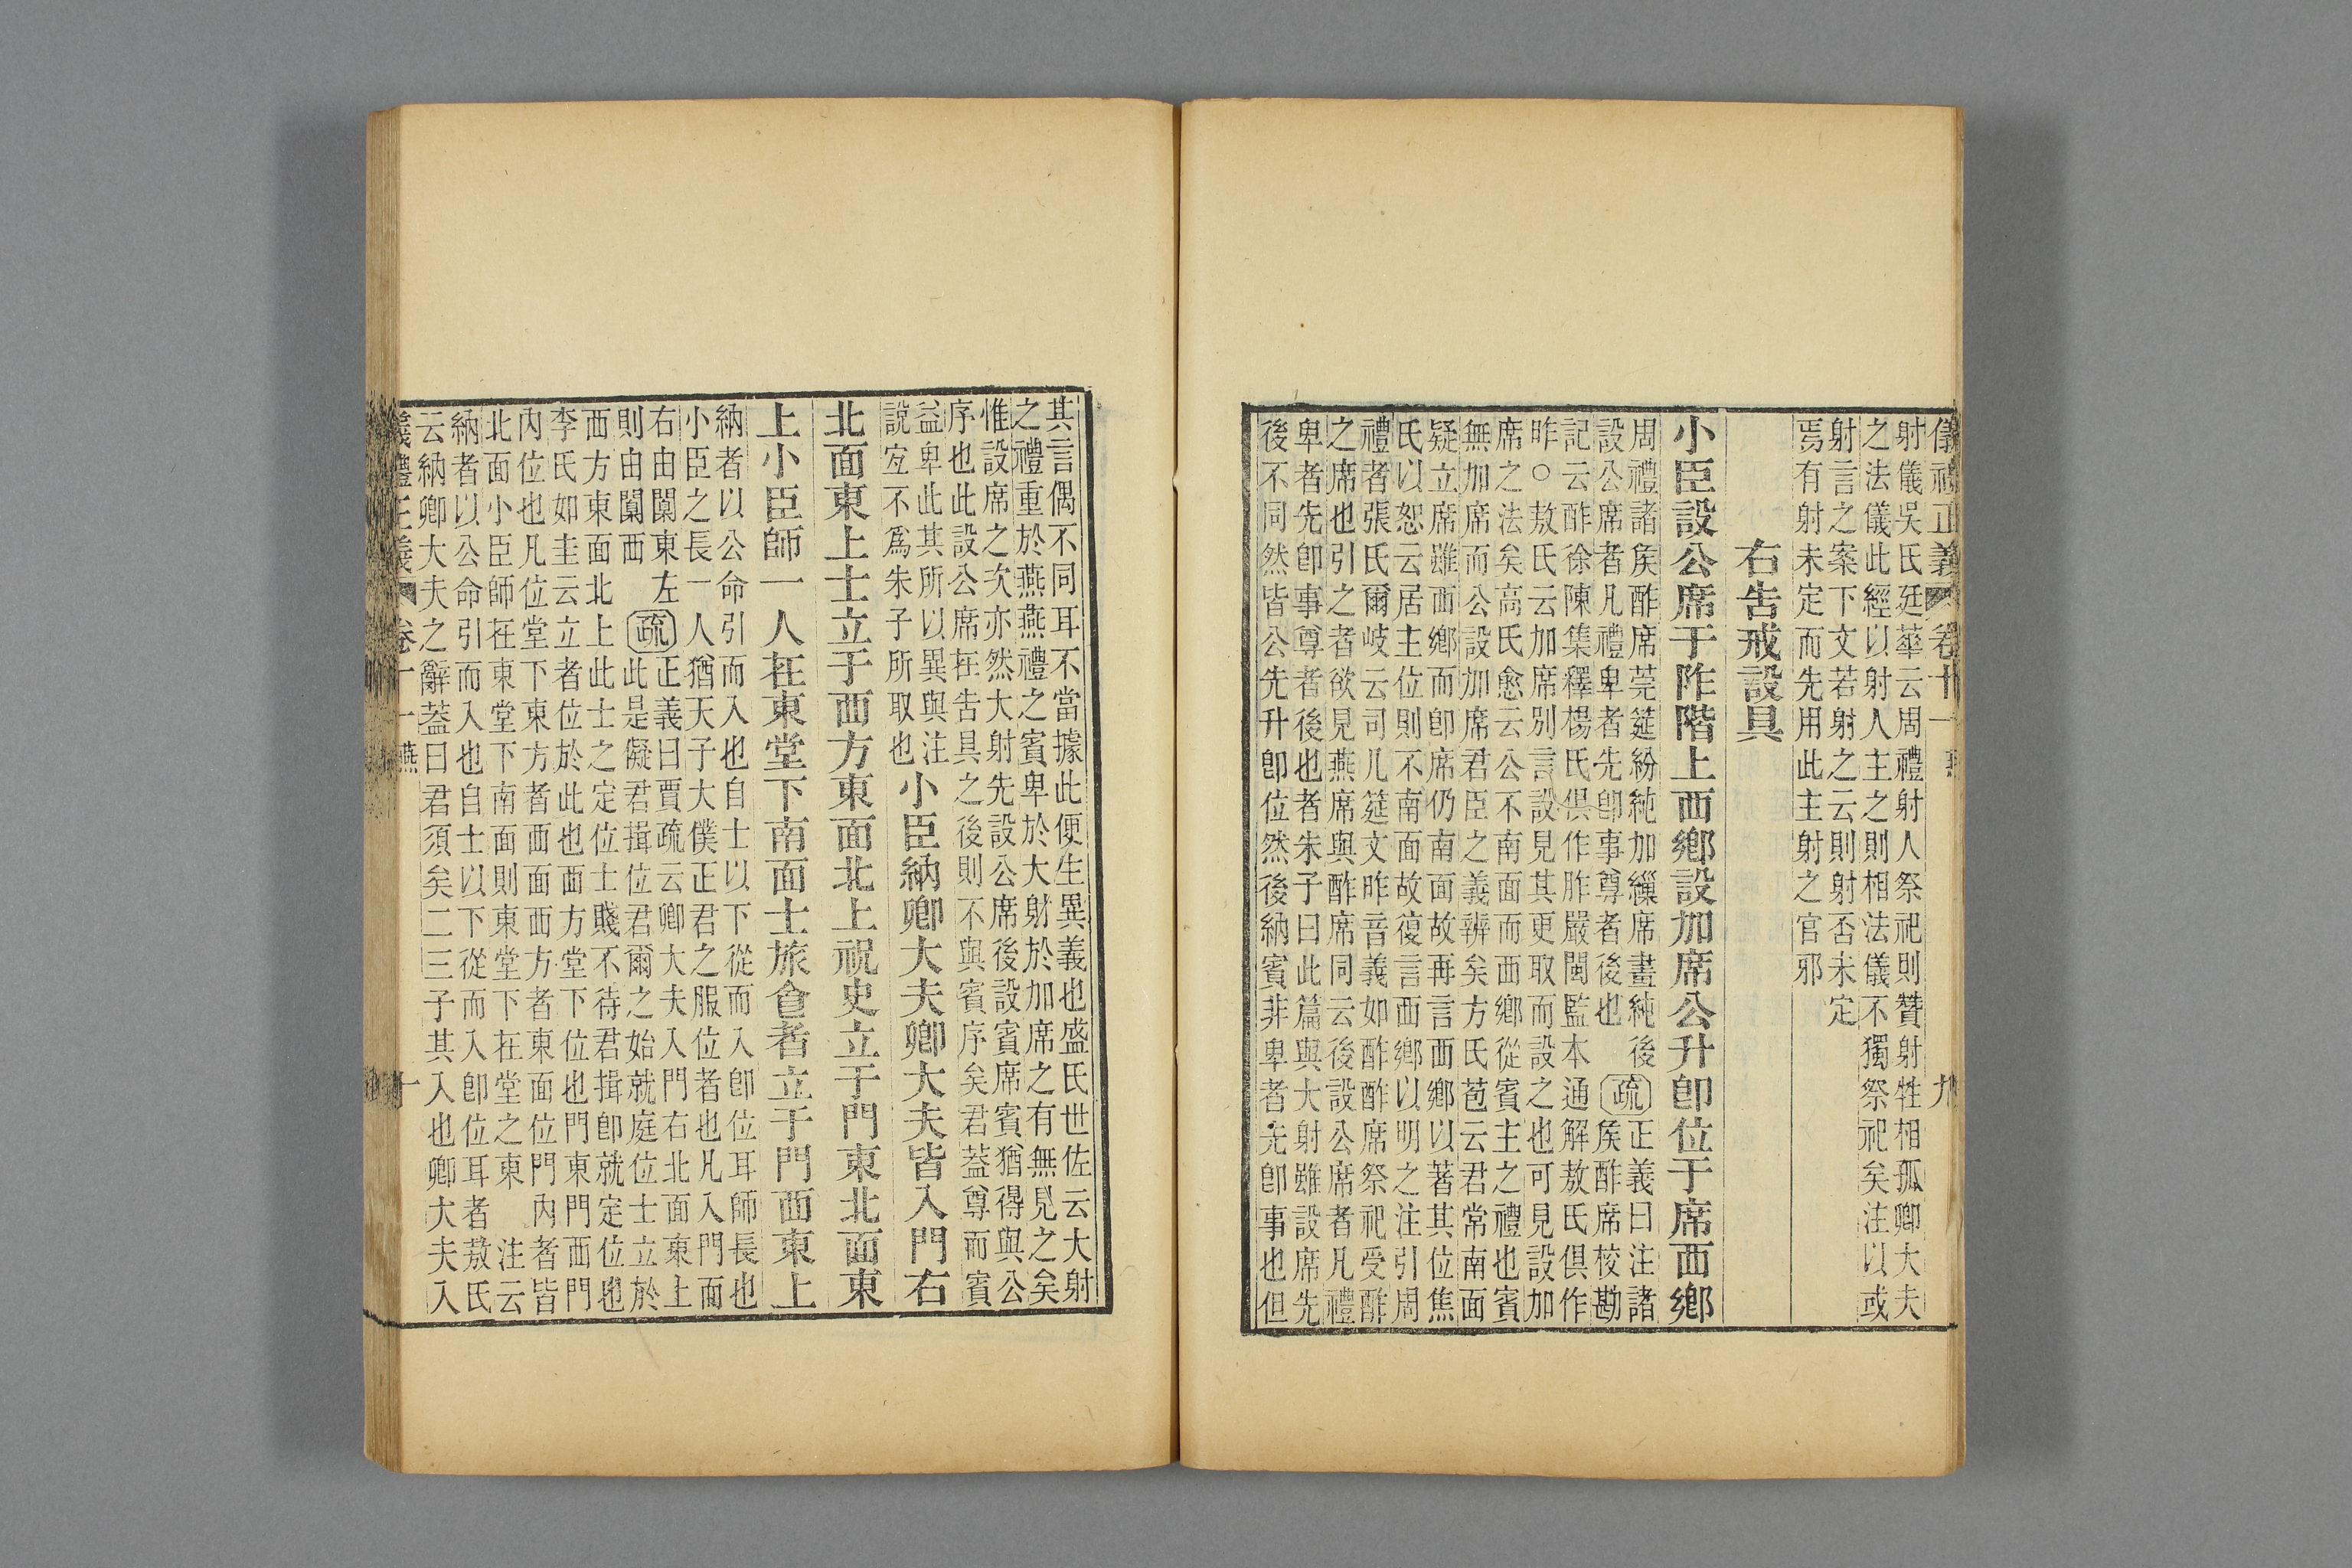 儀禮正義 卷十一 燕 九
射儀吳氏廷華云周禮射人祭祀則贊射牲相孤卿大夫
之法儀此經以射人主之則相法儀不獨祭祀矣注以或
射言之案下文若射之云則射否未定
焉有射未定而先用此主射之官邪
右告戒設具
小臣設公席于阼階上西鄉設加席公升卽位于席西鄉
周禮諸矦酢席莞筵紛純加繅席畫純後
設公席者凡禮卑者先卽事尊者後也
疏正義曰注諸
矦酢席校勘
記云酢徐陳集釋楊氏俱作胙嚴閩監本通解敖氏俱作
昨○敖氏云加席別言設見其更取而設之也可見設加
席之法矣高氏愈云公不南面而西鄉從賓主之禮也賓
無加席而公設加席君臣之義辨矣方氏苞云君常南面
疑立席雖西鄉而卽席仍南面故再言西鄉以著其位焦
氏以恕云居主位則不南面故復言西鄉以明之注引周
禮者張氏爾岐云司几筵文昨音義如酢酢席祭祀受酢
之席也引之者欲見燕席與酢席同云後設公席者凡禮
卑者先卽事尊者後也者朱子曰此篇與大射雖設席先
後不同然皆公先升卽位然後納賓非卑者先卽事也但
其言偶不同耳不當據此便生異義也盛氏世佐云大射
之禮重於燕燕禮之賓卑於大射於加席之有無見之矣
惟設席之次亦然大射先設公席後設賓席賓猶得與公
序也此設公席在告具之後則不與賓序矣君葢尊而賓
益卑此其所以異與注
說宐不爲朱子所取也
小臣納卿大夫卿大夫皆入門右
北面東上士立于西方東面北上祝史立于門東北面東
上小臣師一人在東堂下南面士旅食者立于門西東上
納者以公命引而入也自士以下從而入卽位耳師長也
小臣之長一人猶天子大僕正君之服位者也凡入門而
右由闑東左
則由闑西
疏正義曰賈疏云卿大夫入門右北面東上
此是儗君揖位君爾之始就庭位士立於
西方東面北上此士之定位士賤不待君揖卽就定位也
李氏如圭云立者位於此也西方堂下位也門東門西門
內位也凡位堂下東方者西面西方者東面位門內者皆
北面小臣師在東堂下南面則東堂下在堂之東 注云
納者以公命引而入也自士以下從而入卽位耳者敖氏
云納卿大夫之辭葢曰君須矣二三子其入也卿大夫入
儀禮正義 卷十一 燕 十